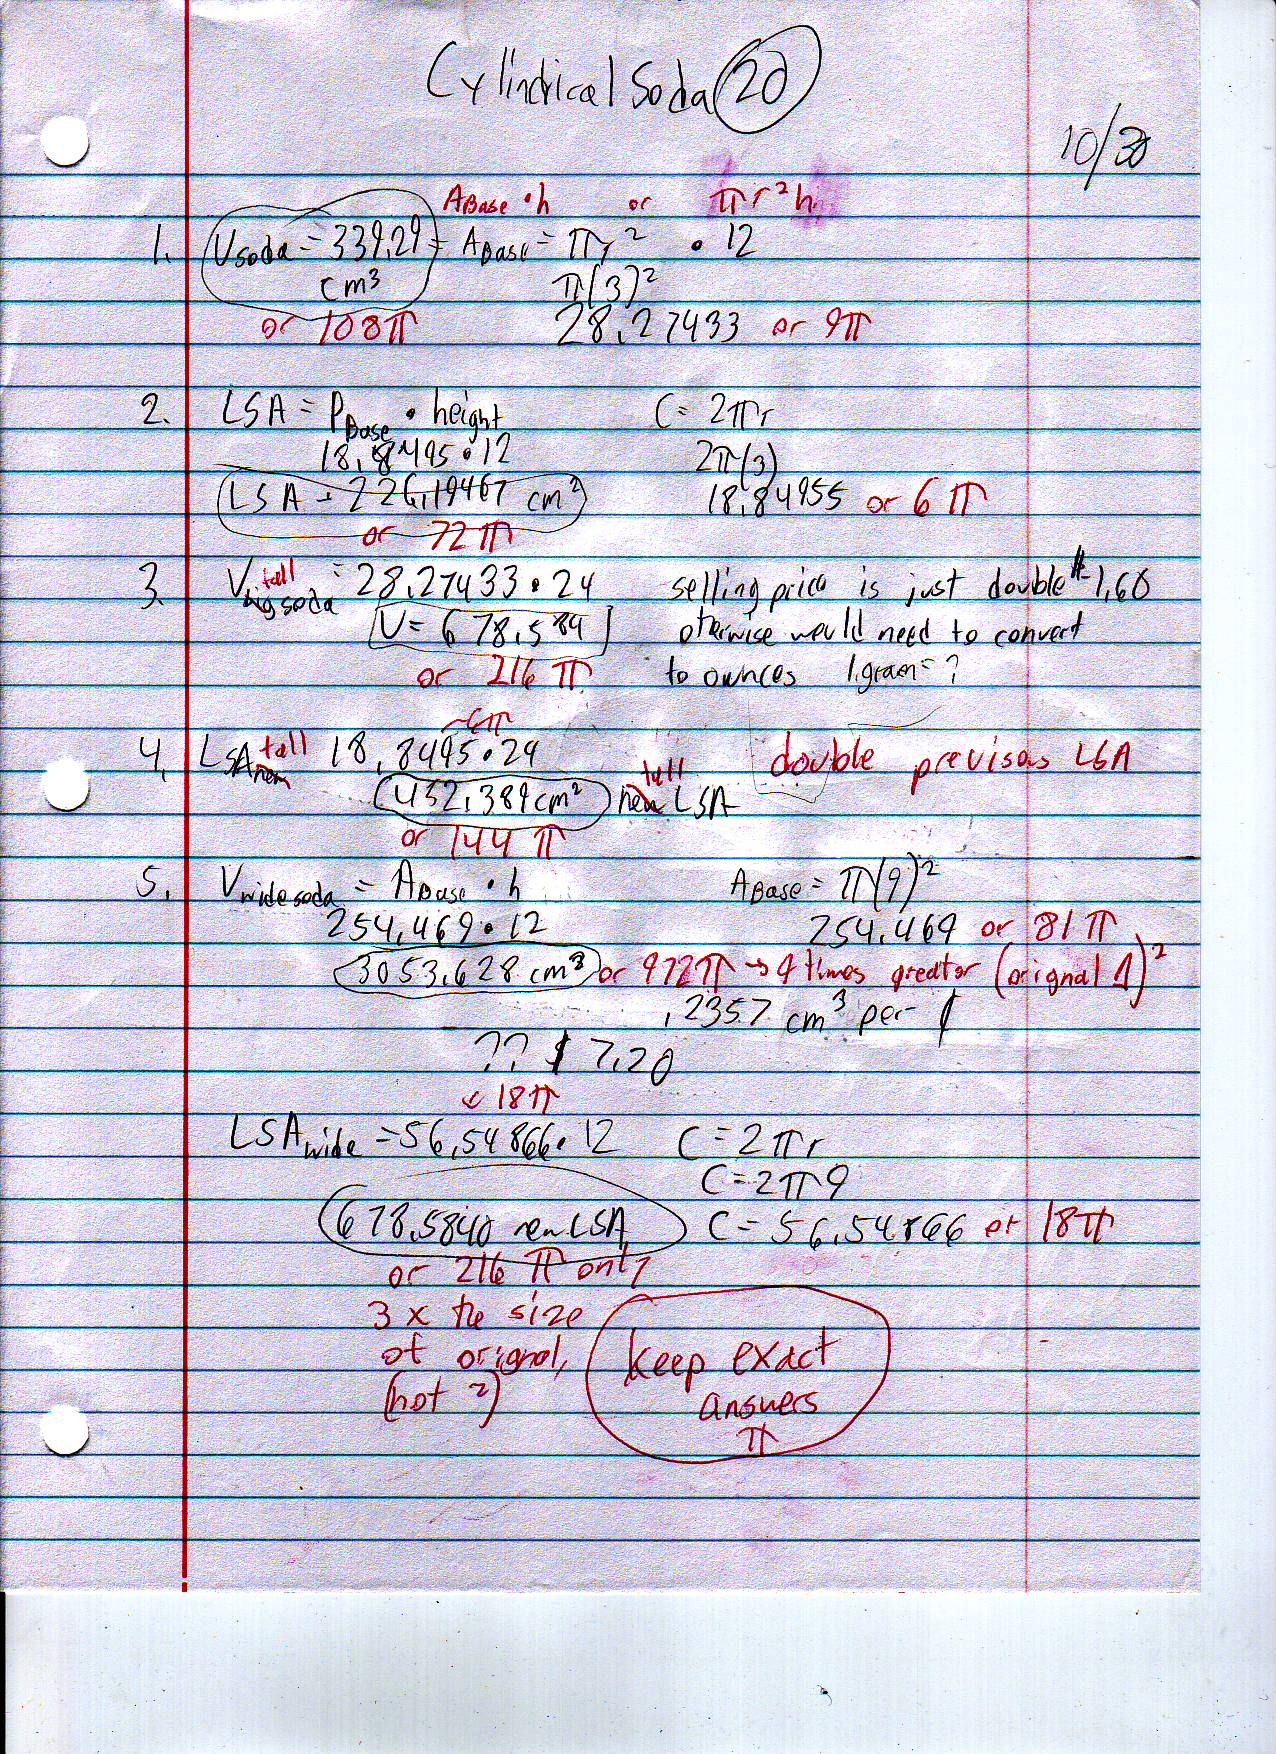 Cylindrical Soda 20
10/30
ABase · h or πr²h
1. Vsoda = 339.29 = ABase = πr² · 12
cm³ π(3)²
or 108π 28.27433 or 9π
2. LSA = PBase · height C = 2πr
18.8495 · 12 2π(3)
LSA = 226.19467 cm² 18.84955 or 6π
or 72π
3. V tall soda = 28.27433 · 24 selling price is just double 1.60
V = 678.584 oterwise would need to convert
or 216π to ownces 1 gram = ?
6π
4. LSA tall 18.8495 · 24 double previsos LSA
452.389 cm² tall LSA
or 144π
5. Vwide soda = ABase · h ABase = π(9)²
254.469 · 12 254.469 or 81π
3053.628 cm³ or 972π → 9 times greator (orignal 1)²
.2357 cm³ per ¢
?? $ 7.20
18π
LSAwide = 56.54866 · 12 C = 2πr
C = 2π9
678.5840 new LSA C = 56.54866 or 18π
or 216π only
3 x the size
of orignal,
(not ²)
keep exact
answers
π